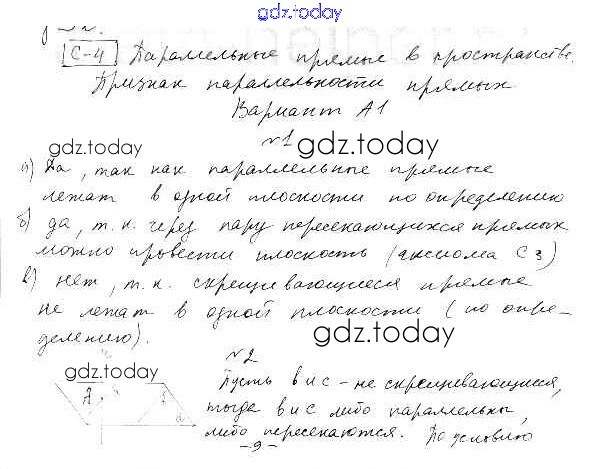 gdz.today
С-4 Параллельные прямые в пространстве.
Признак параллельности прямых
Вариант А1
№1 gdz.today
gdz.today
а) Да, так как параллельные прямые
лежат в одной плоскости по определению
б) да, т.к. через пару пересекающихся прямых
можно провести плоскость (аксиома С3)
в) нет, т.к. скрещивающиеся прямые
не лежат в одной плоскости (по опре-
делению).
gdz.today
№2
gdz.today
Пусть в и с - не скрещивающиеся,
тогда в и с либо параллельны,
либо пересекаются. По условию
-9-